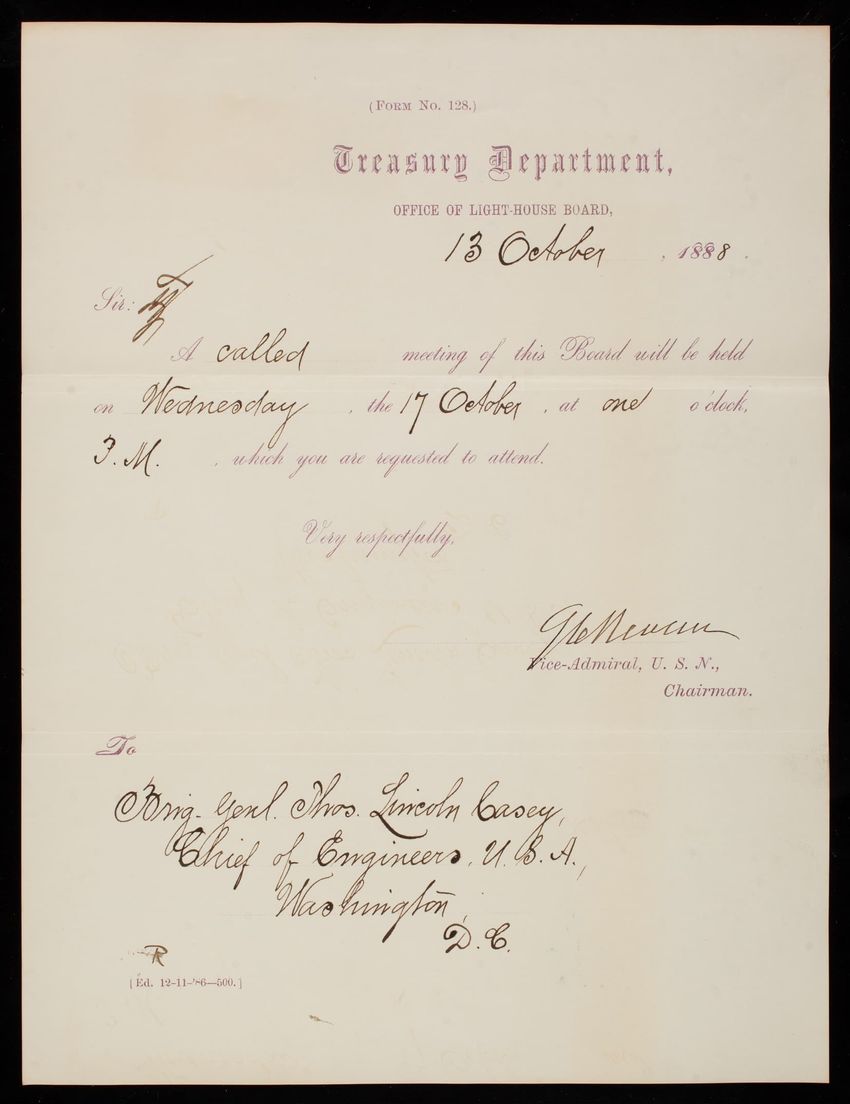 (FORM NO. 128.)
Treasury Department,
OFFICE OF LIGHT-HOUSE BOARD,
13 October, 1888.
Sir:
A called meeting of this Board will be held
on Wednesday, the 17 October, at one o'clock,
P.M., which you are requested to attend.
Very respectfully,
Vice-Admiral, U. S. N.,
Chairman.
To
Brig. Genl. Thos. Lincoln Casey,
Chief of Engineers, U.S.A.,
Washington,
D.C.
R
[Ed. 12-11-'86—500.]